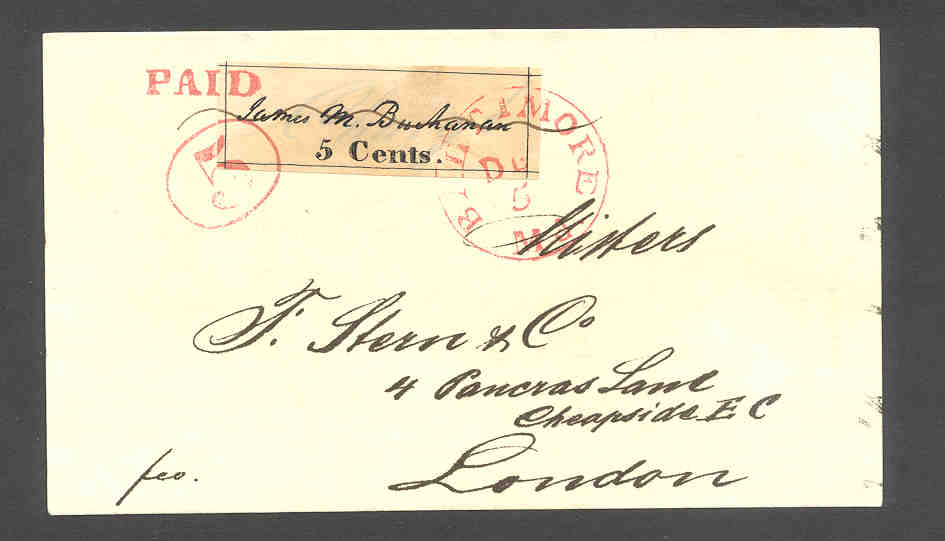 PAID
James M. Buchanan
5 Cents.
5
BALTIMORE Md
DE
5
Messers
F. Stern & Co
4 Pancras Lane
Cheapside E C
London
fco.